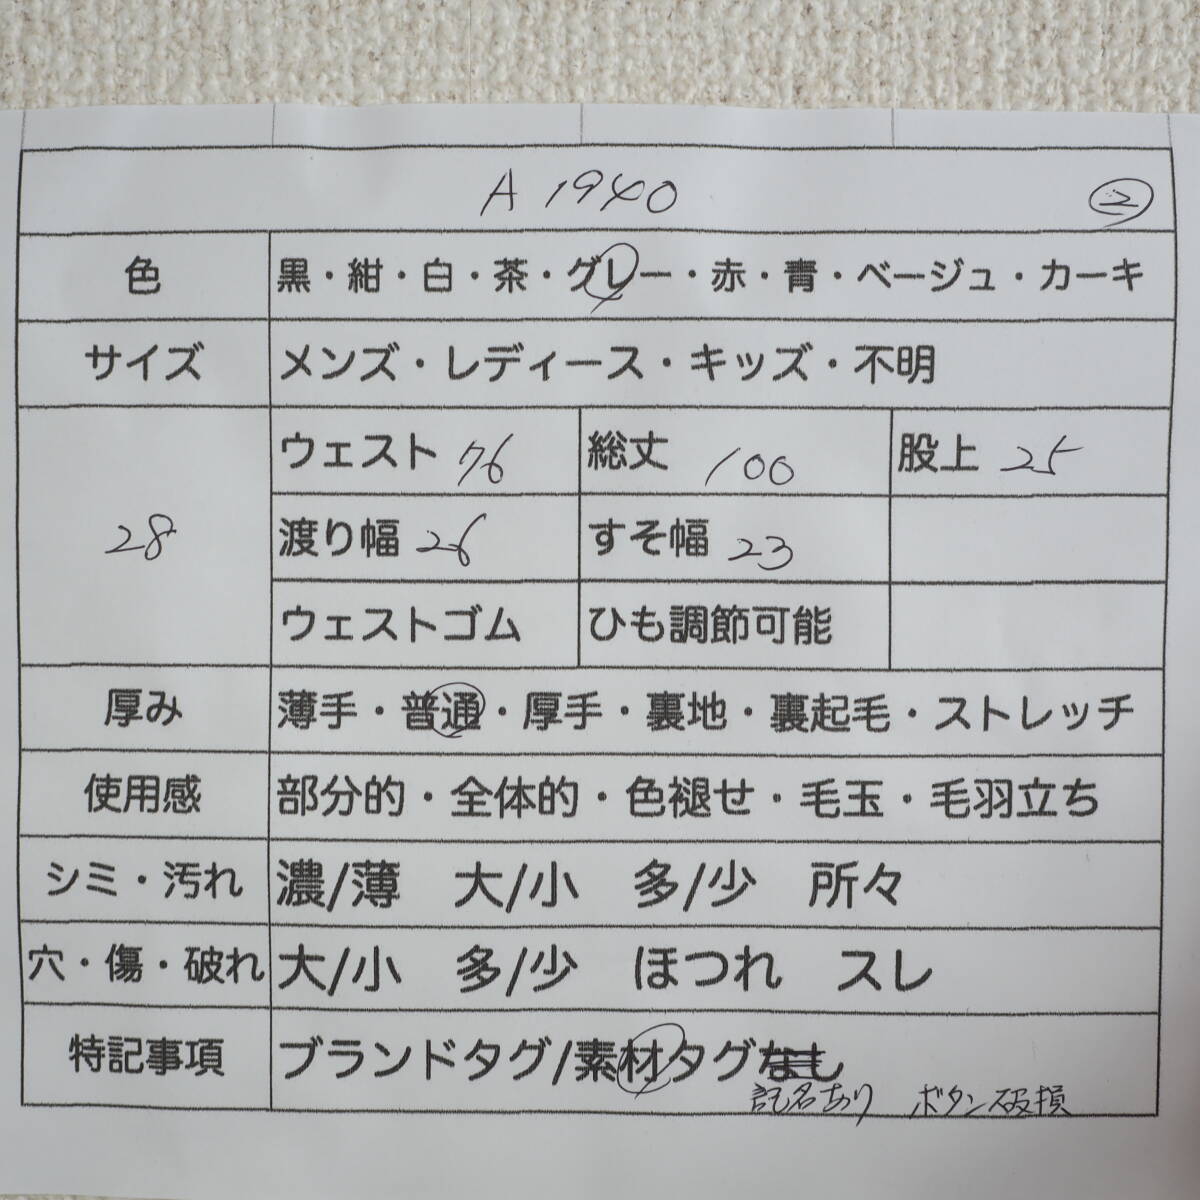 A1940 ②
色 黒・紺・白・茶・グレー・赤・青・ベージュ・カーキ
サイズ メンズ・レディース・キッズ・不明
ウェスト 76 総丈 100 股上 25
28 渡り幅 26 すそ幅 23
ウェストゴム ひも調節可能
厚み 薄手・普通・厚手・裏地・裏起毛・ストレッチ
使用感 部分的・全体的・色褪せ・毛玉・毛羽立ち
シミ・汚れ 濃/薄 大/小 多/少 所々
穴・傷・破れ 大/小 多/少 ほつれ スレ
特記事項 ブランドタグ/素材タグなし
記名あり ボタン破損